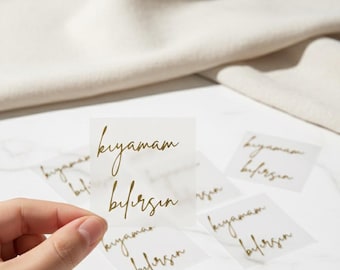 kıyamam
bilirsin
kıyamam
bilirsin
kıyamam
bilirsin
kıyamam
bilirsin
kıyamam
bilirsin